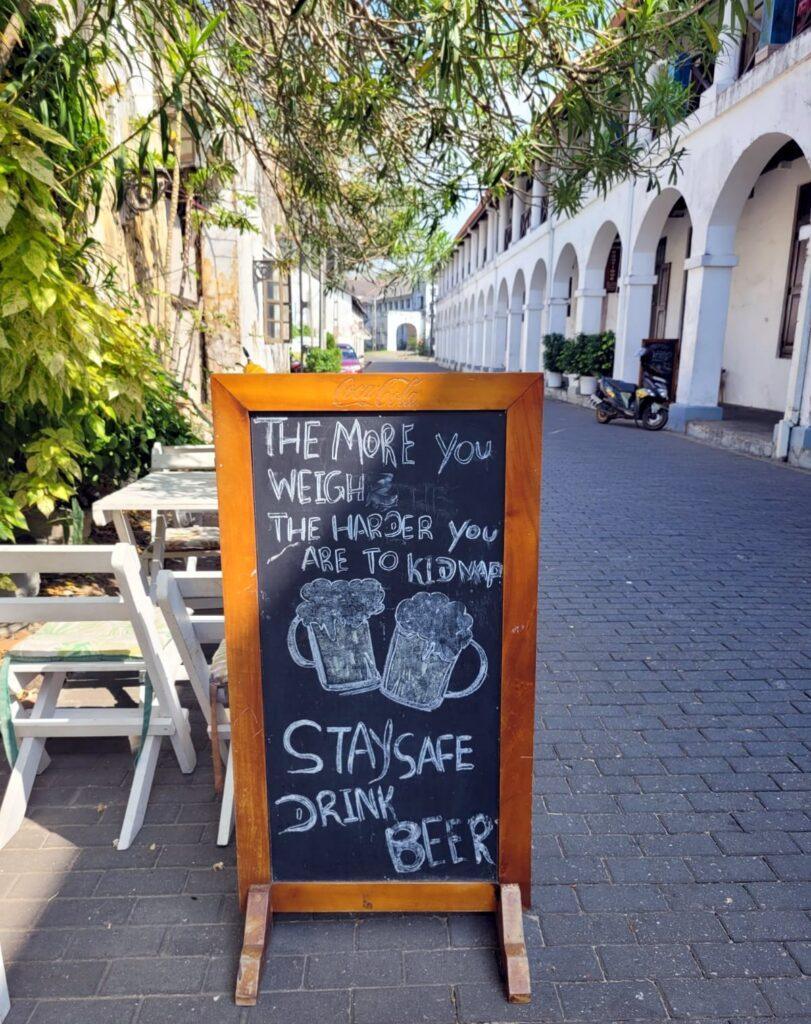 Coca-Cola
THE MORE YOU
WEIGH
THE HARDER YOU
ARE TO KIDNAP
STAY SAFE
DRINK
BEER